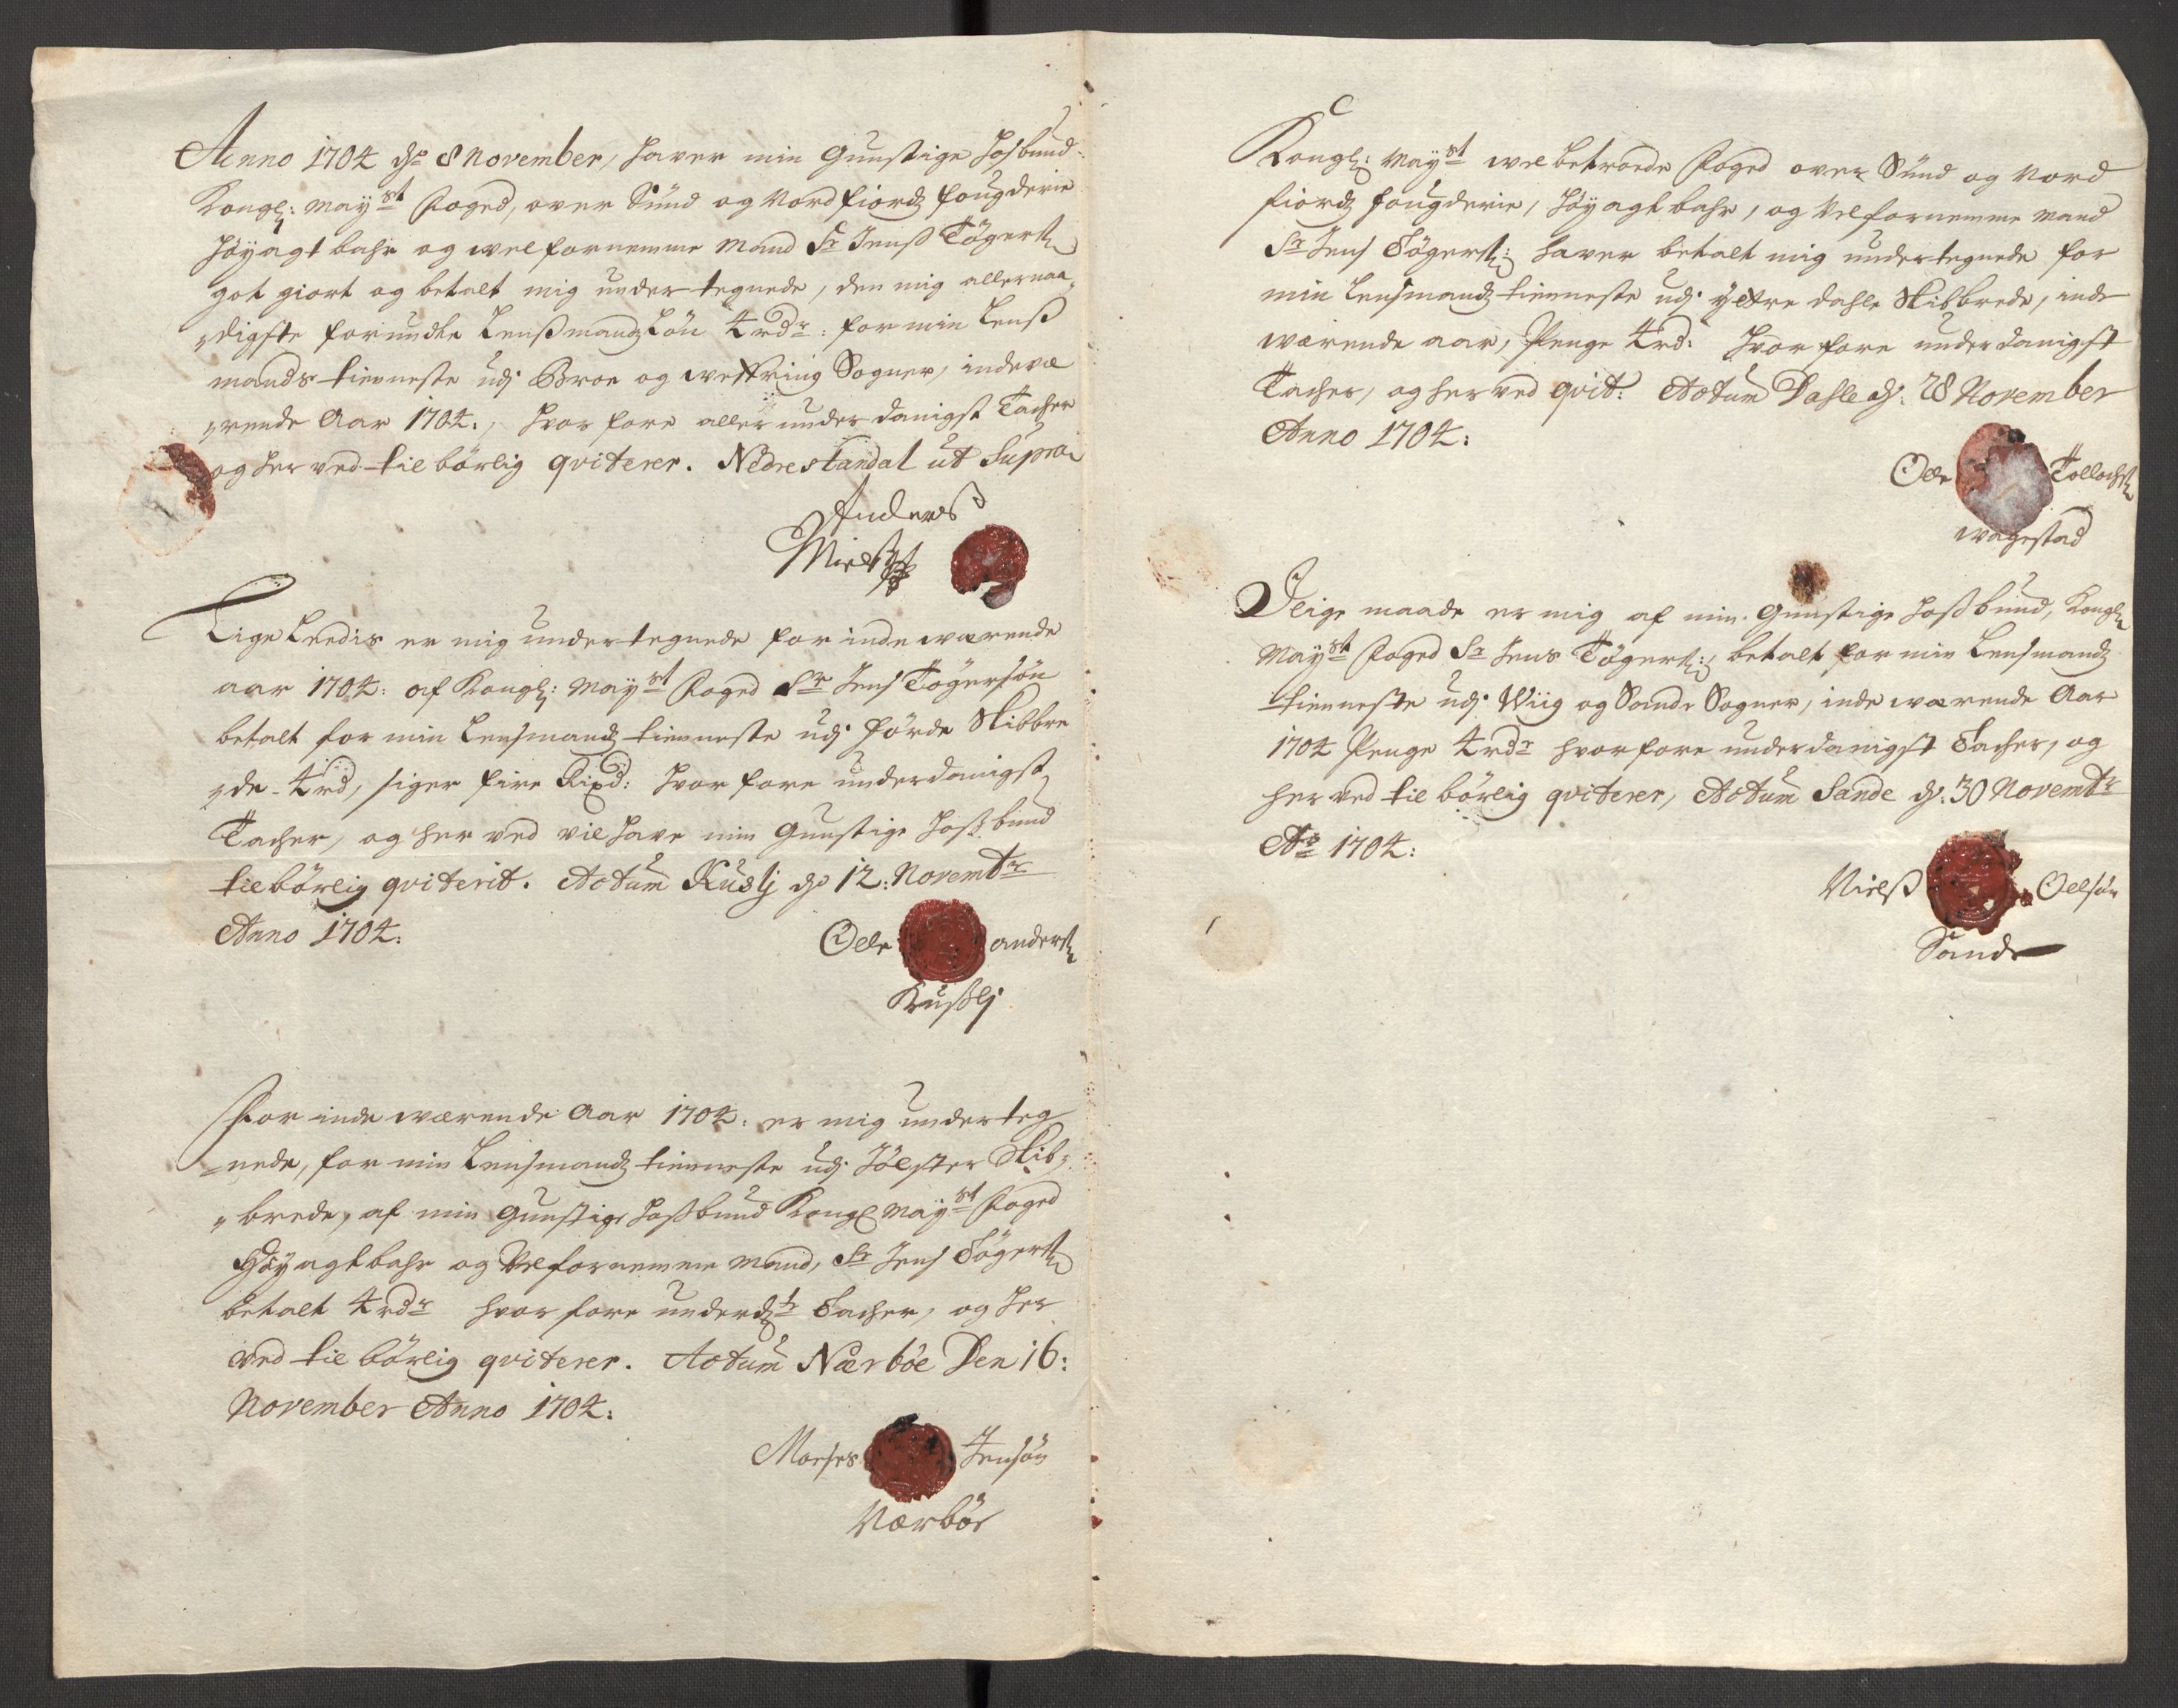 Anno 1704 dn 8 November, hafver min Gunstige Hosbund
Kongl: Mayst Foged, over Sund og Nordfiordz fougderie
Høyagtbahr og welfornemme Mand Sr Jenß Tøgers:
got giort og betalt mig undertegnede, den mig allernaa„
„digste forundte Lenßmandz Løn 4 rdr: for min Lenß
mands tienneste udj Broe og Wettring Sogner, indevæ
„rende Aar 1704., hvorfore aller underdanigst Tacher
og her ved tilbørlig qviterer. Nedrestandal ut Supra
Anders
Nielß:
Lige Leedis er mig undertegnede for indeværende
aar 1704: af Kongl: Mayst Foged Sr Jens Tøgersøn
betalt for min Lensmandz tienneste udj Førde Skibbre
„de 4 rd, siger fire Rixd: hvorfore underdanigst
Tacher, og her ved vil have min Gunstige Hoßbund
tilbørlig qviterit. Actum Kuslj dn 12: Novembr
Anno 1704:
Olle anders:
Kußlj
For indeværende Aar 1704: er mig underteg
„nede, for min Lensmandz tienneste udj Jølster Skib„
„brede, af min Gunstige Hoßbund Kongl Mayst Foged
Høyagtbahr og Velfornemme Mand, Sr Jens Tøgers:
betalt 4 rdr hvorfore underdst Tacher, og her
ved tilbørlig qviterer. Actum Nærbøe Den 16:
November Anno 1704:
Moeses Jensøn
Nærbøe
Kongl: Mayst welbetroede Foged over Sund og Nord
fiordz fougderie, Høyagtbahr, og Velfornemme Mand
Sr Jens Tøgers: hafver betalt mig undertegnede for
min Lensmandz tienneste udj yttre Dahle Skibbrede, inde
wærende aar, Penge 4 rd: hvorfore underdanigst
Tacher, og her ved qvit: Actum Dahle d: 28 November
Anno 1704:
Olle Tollachs:
Wagestad
J lige maade er mig af min Gunstige Hoßbund, Kongl
Mayst Foged Sr Jens Tøgers:, betalt for min Lensmandz
tienneste udj Wiig og Sande Sogner, indeværende Aar
1704 Penge 4 rdr hvorfore underdanigst Tacher, og
her ved tilbørlig qviterer, Actum Sande d: 30 Novembr
Ao 1704:
Nielß Ollsøn
Sande